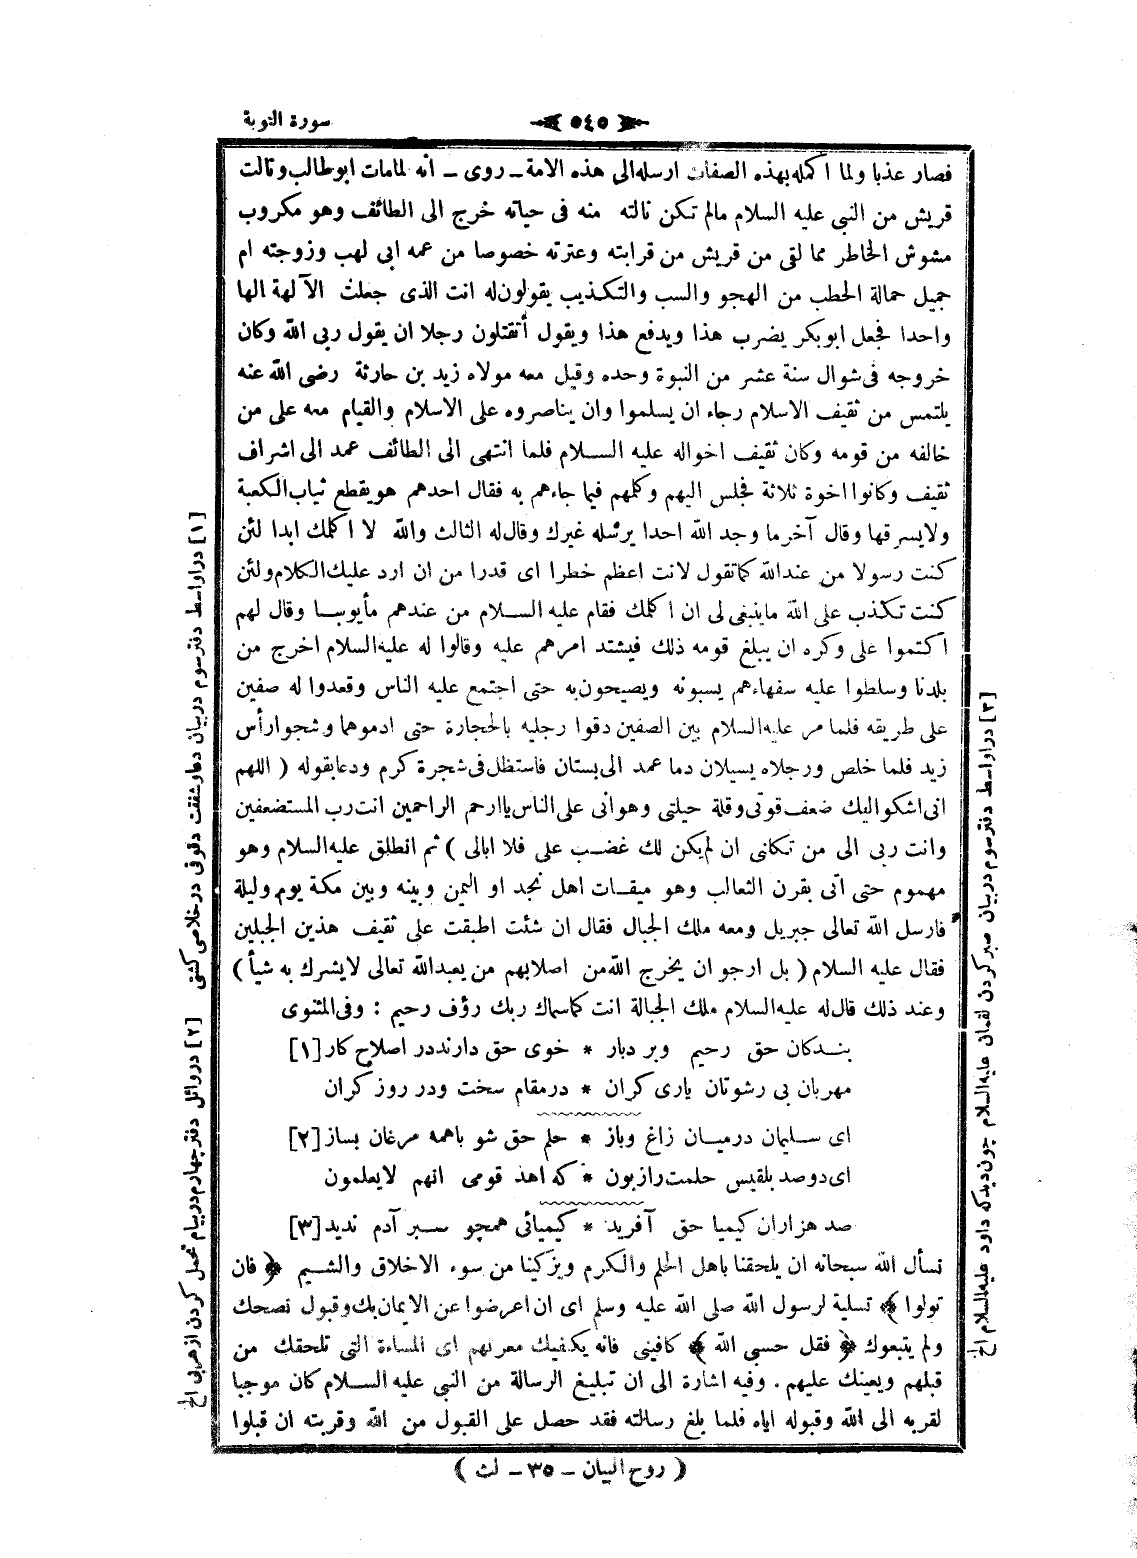 سورة التوبة
٥٤٥
فصار عذبا ولما اكمله بهذه الصفات ارسله الى هذه الامة ـ روى ـ أنه لمامات ابوطالب ونالت
قريش من النبى عليه السلام مالم تكن نالته منه فى حياته خرج الى الطائف وهو مكروب
مشوش الخاطر مما لقى من قريش من قرابته وعترته خصوصا من عمه ابى لهب وزوجته ام
جميل حمالة الحطب من الهجو والسب والتكذيب يقولون له انت الذى جعلت الآلهة الها
واحدا فجعل ابوبكر يضرب هذا ويدفع هذا ويقول أتقتلون رجلا ان يقول ربى الله وكان
خروجه فى شوال سنة عشر من النبوة وحده وقيل معه مولاه زيد بن حارثة رضى الله عنه
يلتمس من ثقيف الاسلام رجاء ان يسلموا وان يناصروه على الاسلام والقيام معه على من
خالفه من قومه وكان ثقيف اخواله عليه السلام فلما انتهى الى الطائف عمد الى اشراف
ثقيف وكانوا اخوة ثلاثة فجلس اليهم وكلهم فيما جاءهم به فقال احدهم هو يقطع ثياب الكعبة
ولايسرقها وقال آخر ما وجد الله احدا يرسله غيرك وقال له الثالث والله لا اكلمك ابدا لئن
كنت رسولا من عندالله كما تقول لانت اعظم خطرا اى قدرا من ان ارد عليك الكلام ولئن
كنت تكذب على الله ماينبغى لى ان اكلمك فقام عليه السلام من عندهم مأيوسا وقال لهم
اكتموا على وكره ان يبلغ قومه ذلك فيشتد امرهم عليه وقالوا له عليه السلام اخرج من
بلدنا وسلطوا عليه سفهاءهم يسبونه ويصيحون به حتى اجتمع عليه الناس وقعدوا له صفين
على طريقه فلما مر عليه السلام بين الصفين دقوا رجليه بالحجارة حتى ادموهما وشجوا رأس
زيد فلما خلص ورجلاه يسيلان دما عمد الى بستان فاستظل فى شجرة كرم ودعا بقوله ( اللهم
انى اشكو اليك ضعف قوتى وقلة حيلتى وهوانى على الناس يا ارحم الراحمين انت رب المستضعفين
وانت ربى الى من تكلنى ان لم يكن لك غضب على فلا ابالى ) ثم انطلق عليه السلام وهو
مهموم حتى اتى بقرن الثعالب وهو ميقات اهل نجد او اليمن وبينه وبين مكة يوم وليلة
فارسل الله تعالى جبريل ومعه ملك الجبال فقال ان شئت اطبقت على ثقيف هذين الجبلين
فقال عليه السلام ( بل ارجو ان يخرج الله من اصلابهم من يعبدالله تعالى لايشرك به شيأ )
وعند ذلك قال له عليه السلام ملك الجبالة انت كما سماك ربك رؤف رحيم : وفى المثنوى
بندكان حق رحيم وبردبار * خوى حق دارند در اصلاح كار [١]
مهربان بى رشوتان يارى كران * درمقام سخت ودر روز كران
اى سليمان درميان زاغ وباز * حلم حق شو باهمه مرغان بساز [٢]
اى دوصد بلقيس حلمت رازبون * كه اهد قومى انهم لايعلمون
صد هزاران كيميا حق آفريد * كيميائى همچو صبر آدم نديد [٣]
نسأل الله سبحانه ان يلحقنا باهل الحلم والكرم ويزكينا من سوء الاخلاق والشيم ﴿ فان
تولوا ﴾ تسلية لرسول الله صلى الله عليه وسلم اى ان اعرضوا عن الايمان بك وقبول نصحك
ولم يتبعوك ﴿ فقل حسبى الله ﴾ كافينى فانه يكفيك معرتهم اى المساءة التى تلحقك من
قبلهم ويعينك عليهم . وفيه اشارة الى ان تبليغ الرسالة من النبى عليه السلام كان موجبا
لقربه الى الله وقبوله اياه فلما بلغ رسالته فقد حصل على القبول من الله وقربته ان قبلوا
( روح البيان ـ ٣٥ ـ لث )
[١] در اواسط دفتر سوم دربيان دعا وشفقت دقوقى در خلاصى كشتى
[٢] در اوائل دفتر چهارم دربيام تحمل كردن از هر بى الخ
[٣] در اواسط دفتر سوم دربيان صبر كردن لقمان عليه السلام چون ديد كه داود عليه السلام الخ